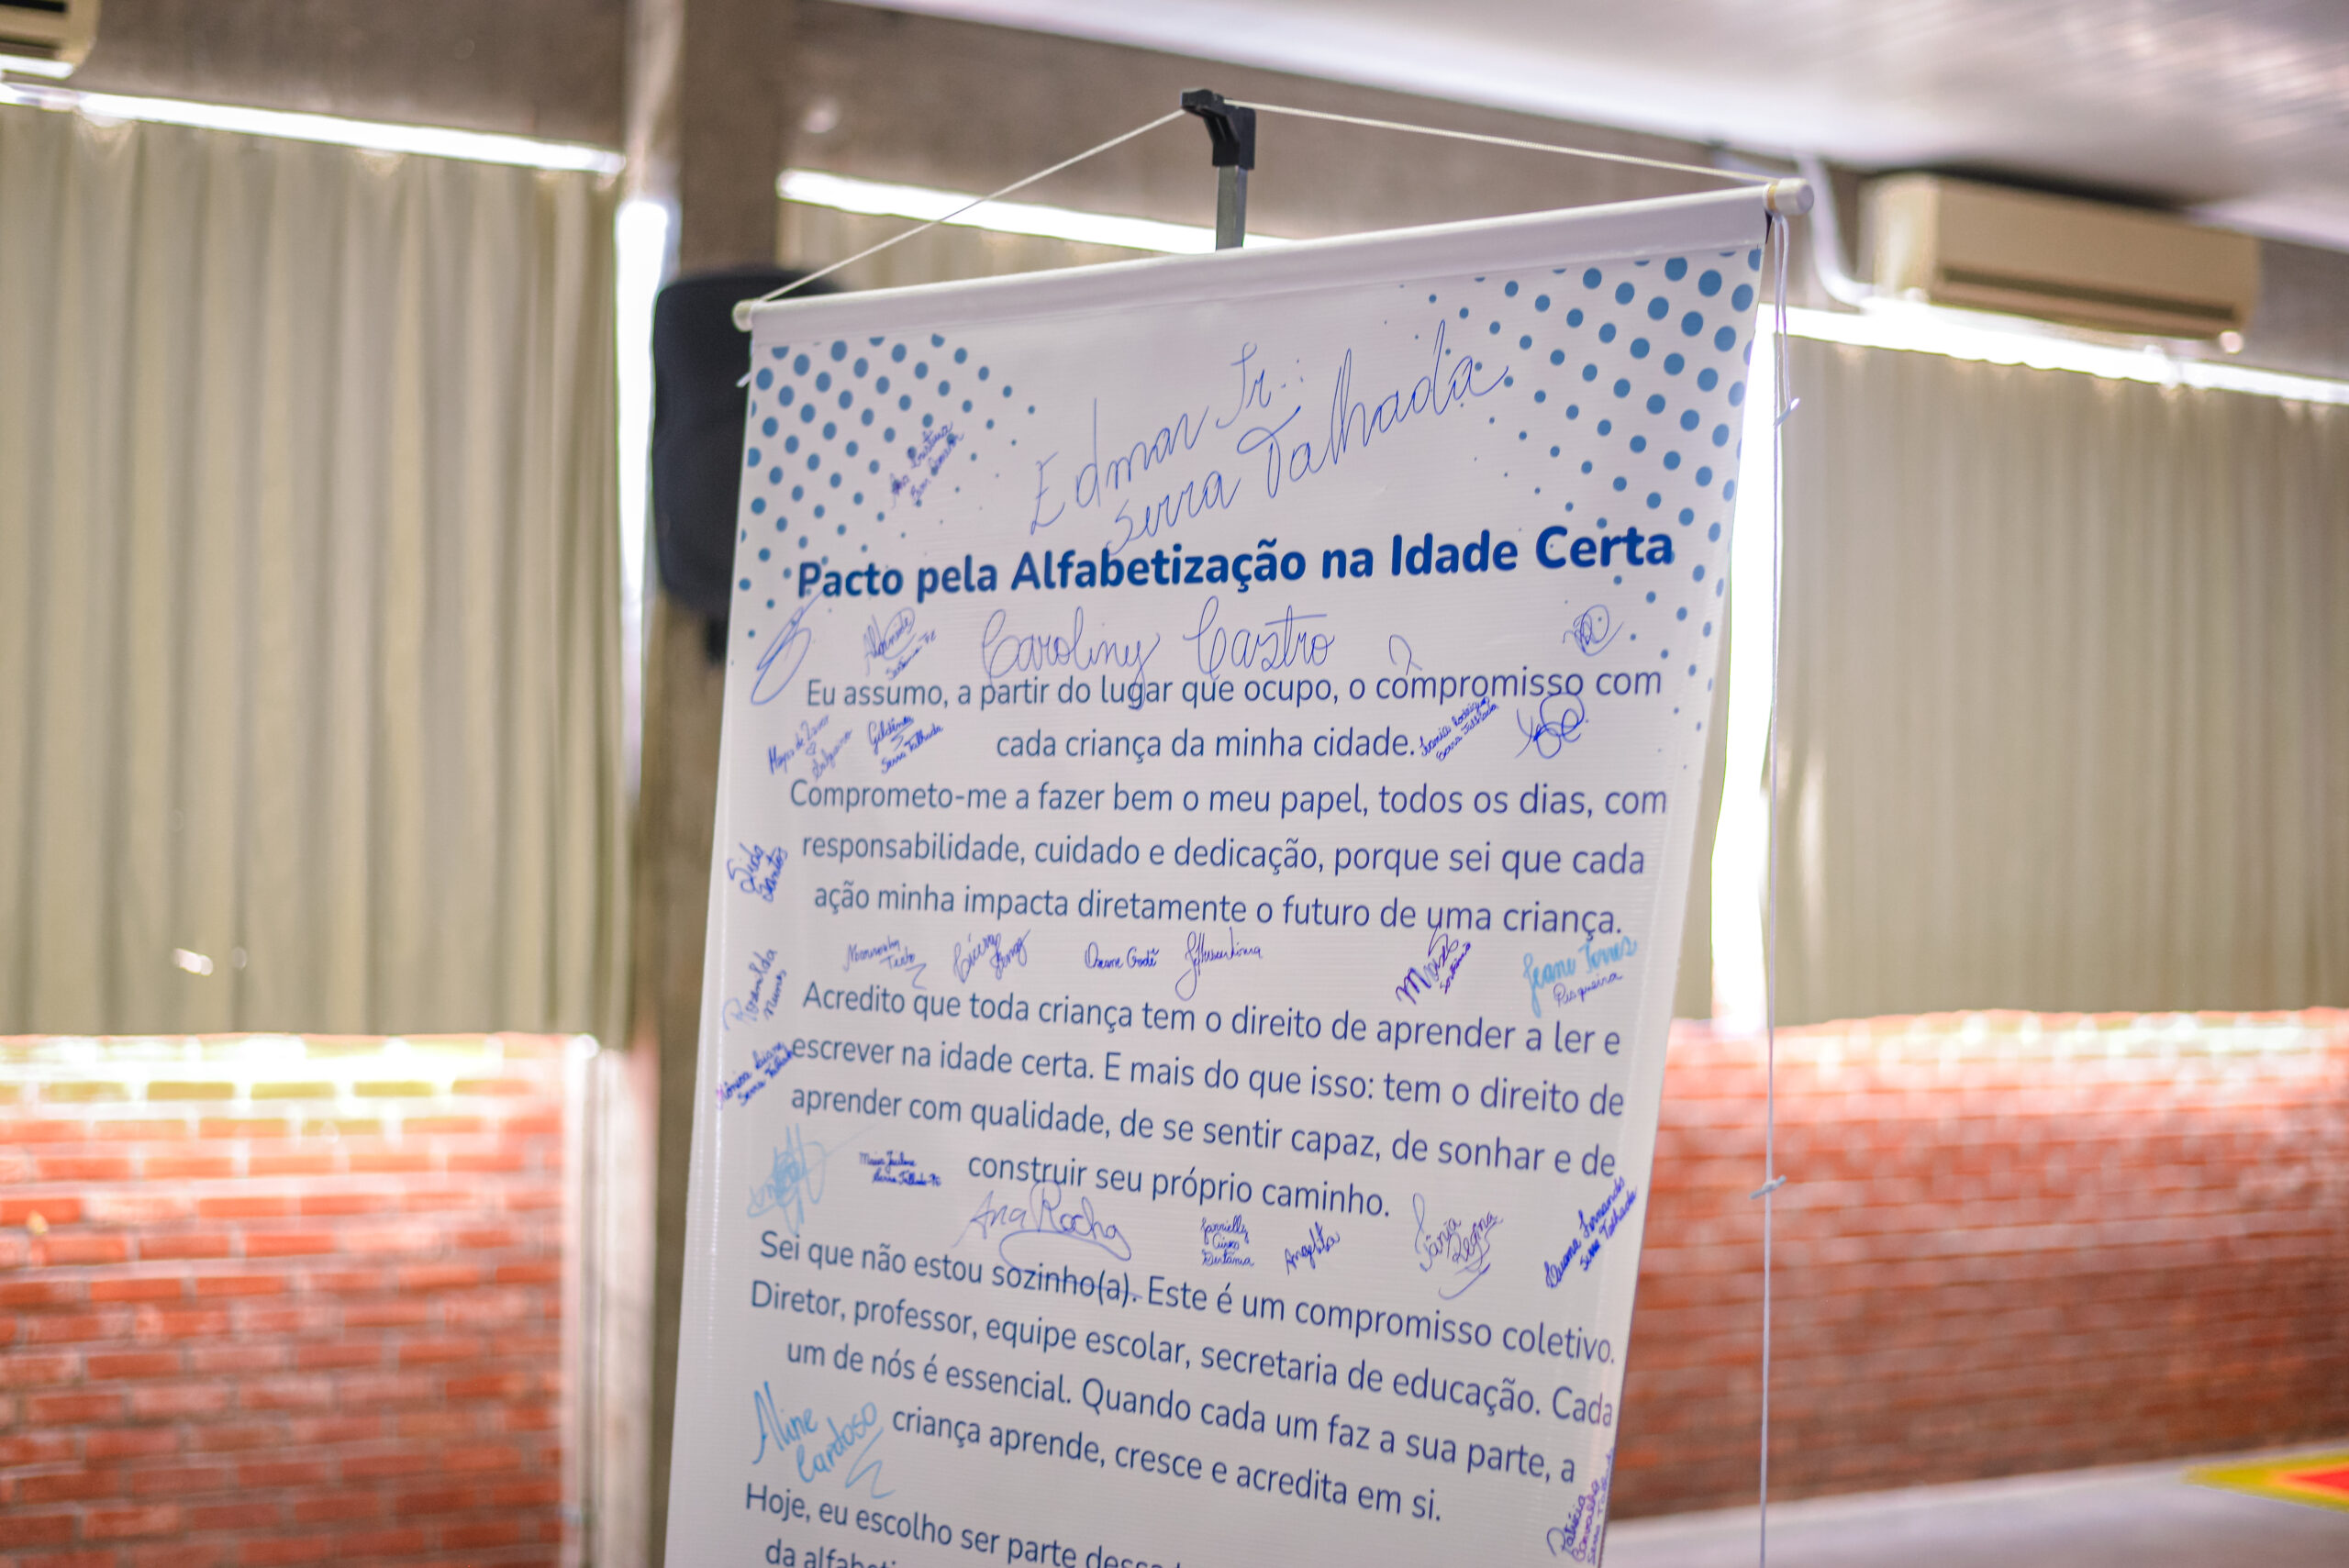 Edmar Jr.
Serra Talhada
Pacto pela Alfabetização na Idade Certa
Caroliny Castro
Eu assumo, a partir do lugar que ocupo, o compromisso com
cada criança da minha cidade.
Serra Talhada
Comprometo-me a fazer bem o meu papel, todos os dias, com
responsabilidade, cuidado e dedicação, porque sei que cada
Santos
ação minha impacta diretamente o futuro de uma criança.
Jeane Torres
Pesqueira
Acredito que toda criança tem o direito de aprender a ler e
escrever na idade certa. E mais do que isso: tem o direito de
aprender com qualidade, de se sentir capaz, de sonhar e de
construir seu próprio caminho.
Ana Rocha
Angelita
Tânia
Regina
Sertânia
Sei que não estou sozinho(a). Este é um compromisso coletivo.
Diretor, professor, equipe escolar, secretaria de educação. Cada
um de nós é essencial. Quando cada um faz a sua parte, a
criança aprende, cresce e acredita em si.
Aline
Cardoso
Patrícia
Carvalho
Hoje, eu escolho ser parte